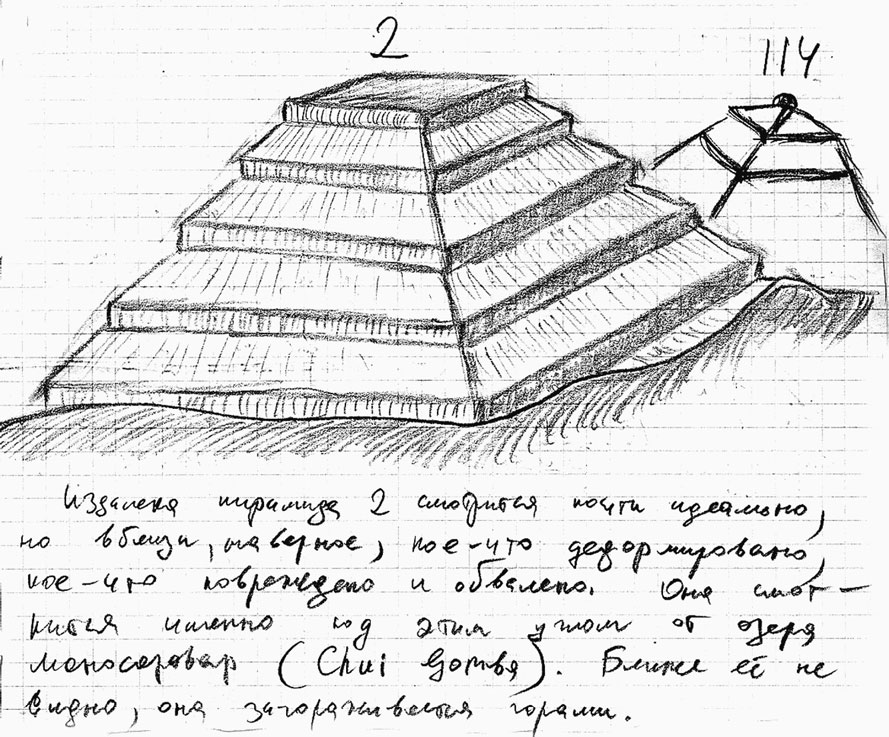 2
114
Издалека пирамида 2 смотрится почти идеально,
но вблизи, наверное, кое-что деформировано,
кое-что повреждено и обвалено. Она смот-
рится именно под этим углом от озера
Маносаровар (Chui Gomba). Ближе её не
видно, она загораживается горами.